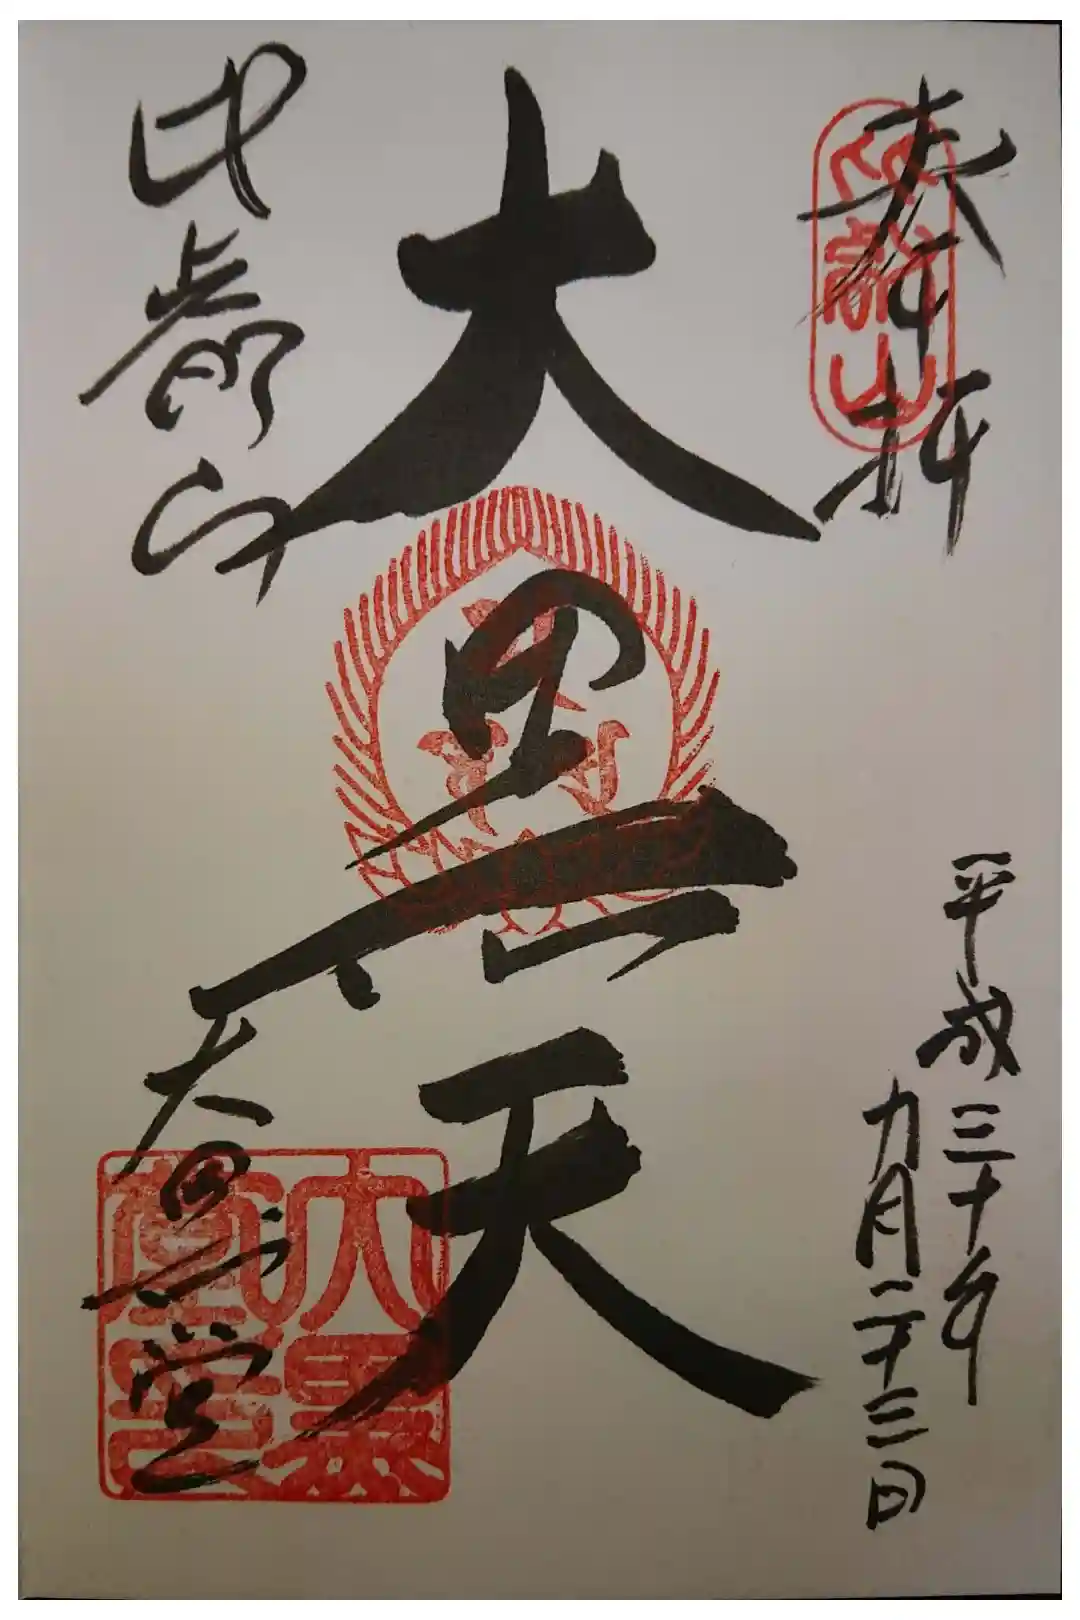 奉拝
比叡山
平成三十年
九月二十三日
大黒天
比叡山
大黒堂